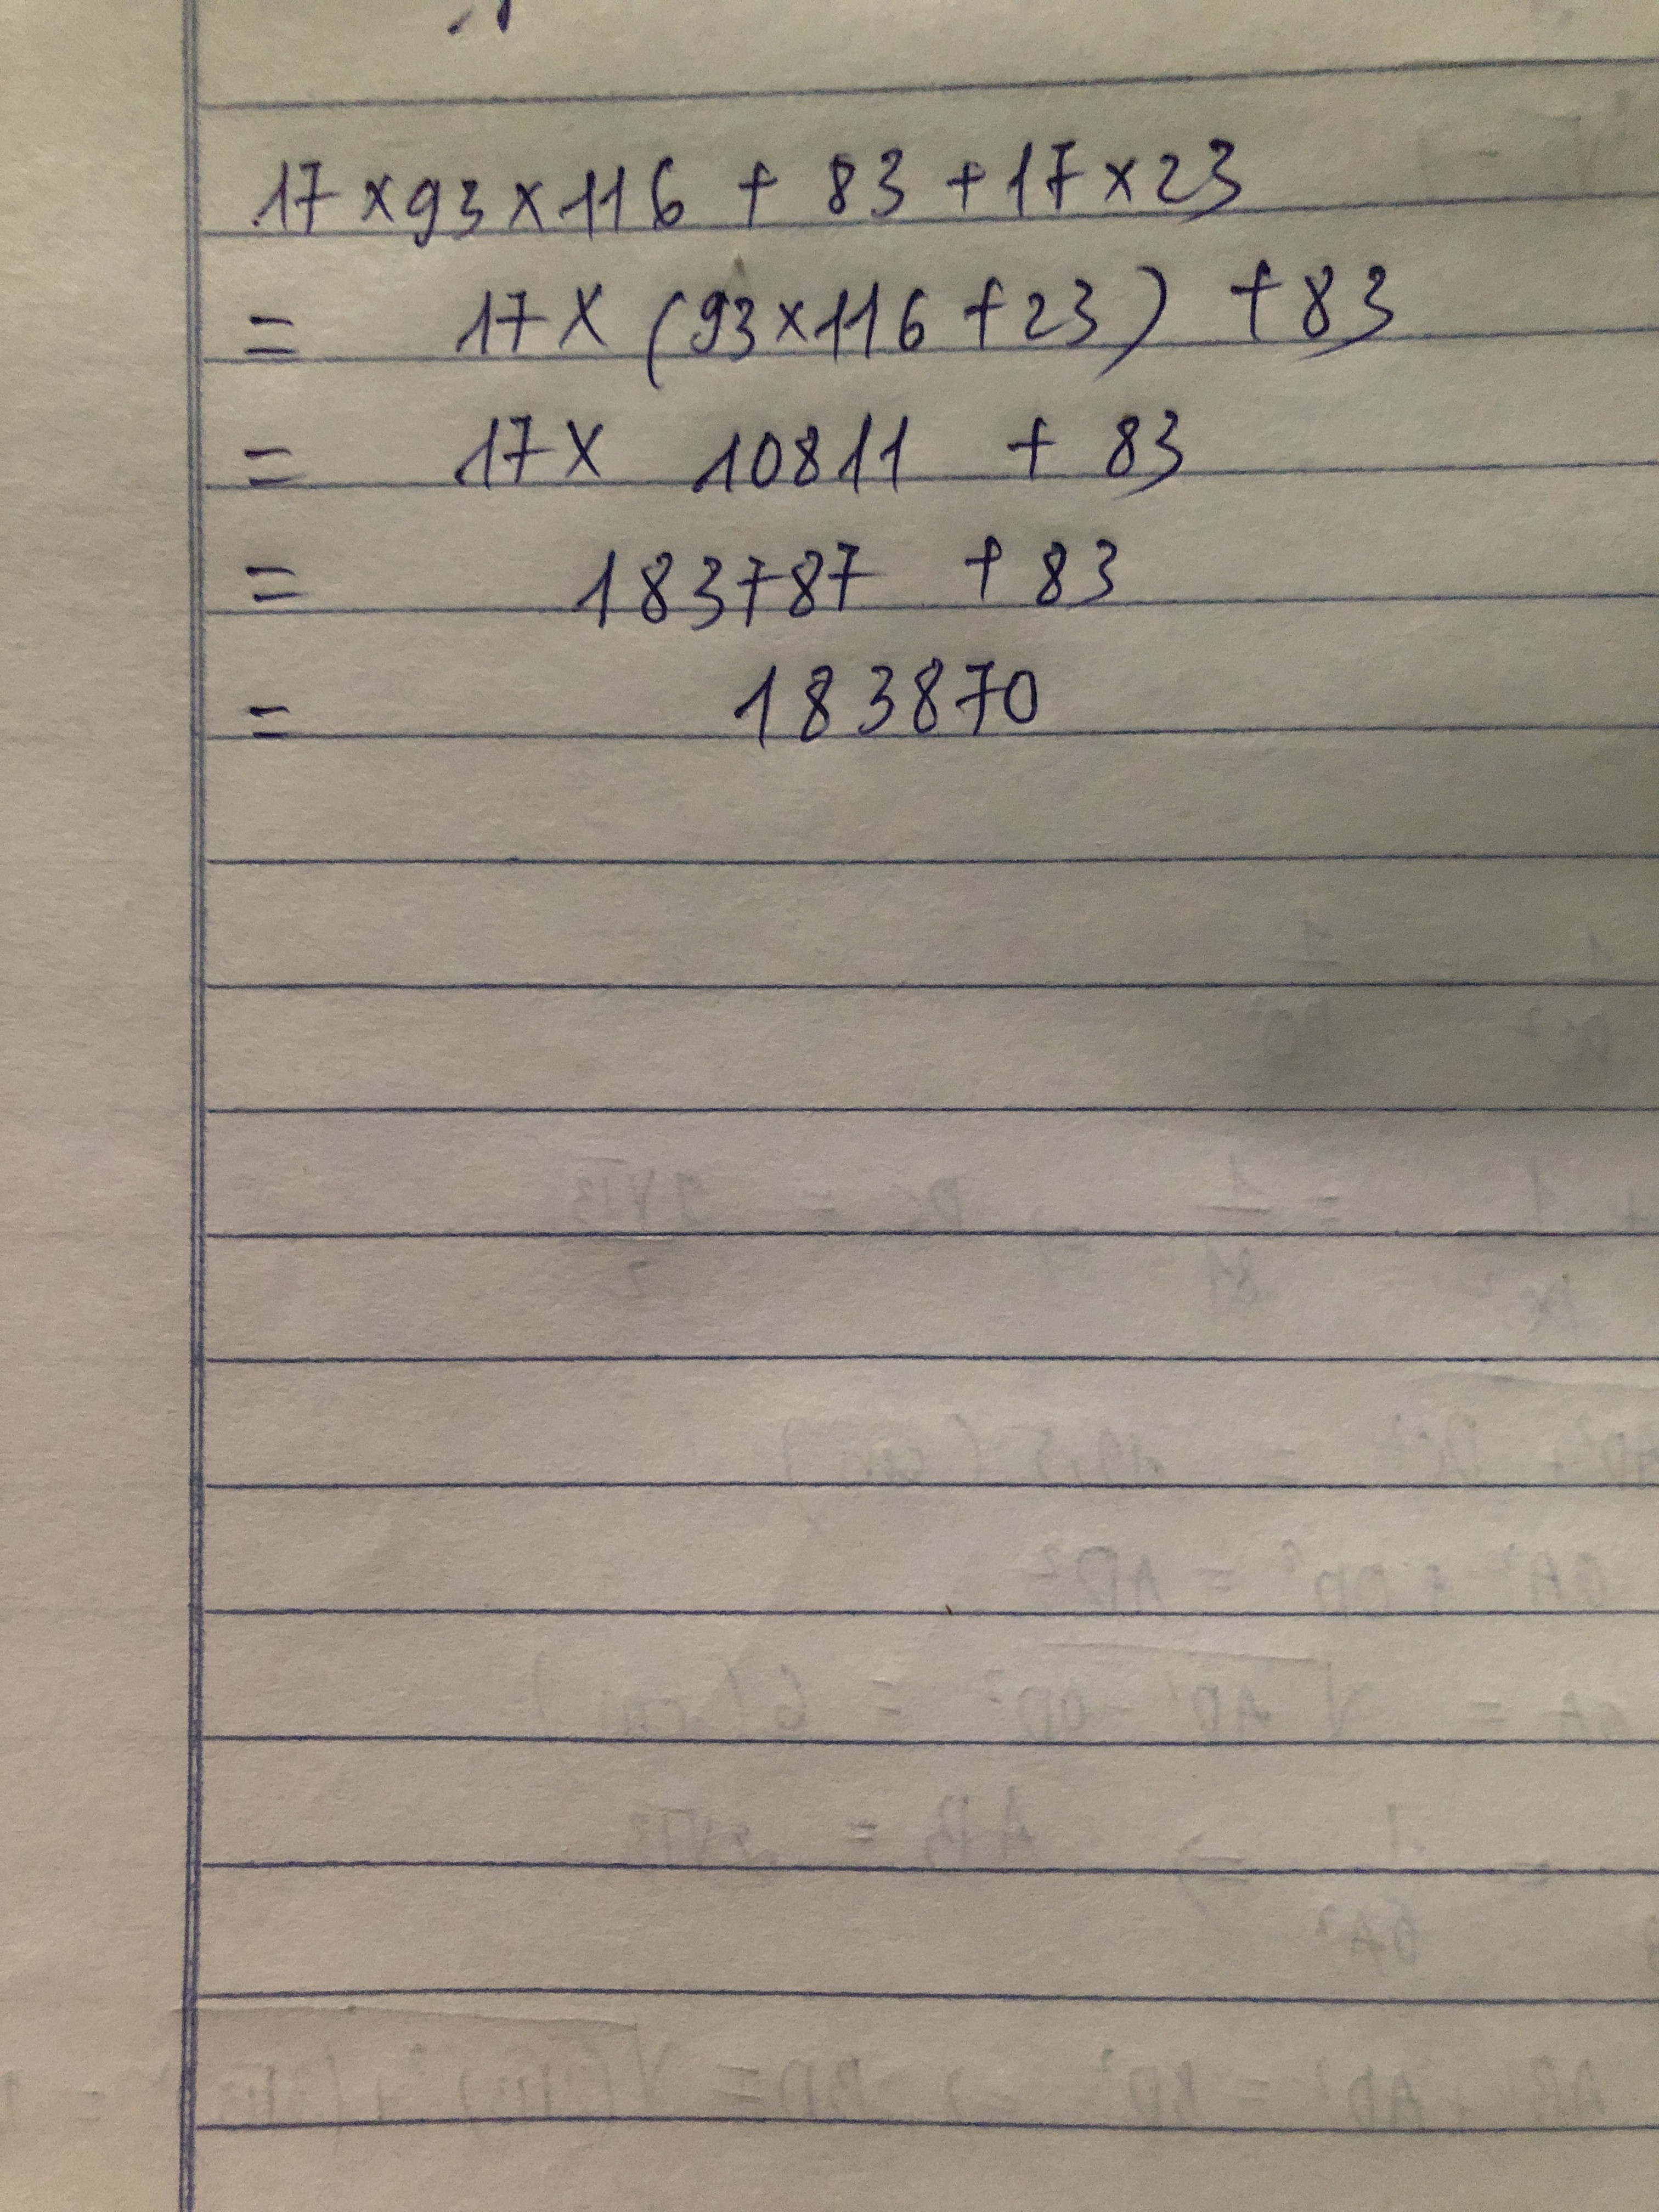 17 × 93 × 116 + 83 + 17 × 23
= 17 × (93 × 116 + 23) + 83
= 17 × 10811 + 83
= 183787 + 83
= 183870